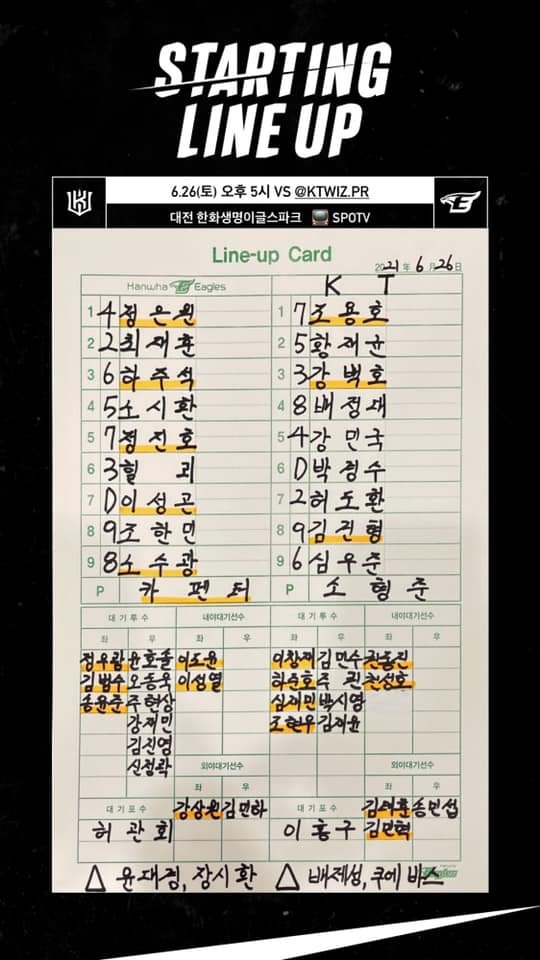 STARTING
LINE UP
6.26(토) 오후 5시 VS @KTWIZ.PR
대전 한화생명이글스파크 SPOTV
Line-up Card
2021 年 6 月 26 日
Hanwha Eagles K T
1 4 정은원 1 7 조용호
2 2 최재훈 2 5 황재균
3 6 하주석 3 3 강백호
4 5 노시환 4 8 배정대
5 7 정진호 5 4 강민국
6 3 힐리 6 D 박경수
7 D 이성곤 7 2 허도환
8 9 조한민 8 9 김건형
9 8 노수광 9 6 심우준
P 카펜터 P 소형준
대기투수 내야대기선수 대기투수 내야대기선수
좌 우 좌 우 좌 우 좌 우
정우람 윤호솔 이도윤 이창재 김민수 권동진
김범수 오동욱 이성열 하준호 주권 천성호
송윤준 주현상 심재민 박시영
강재민 조현우 김재윤
김진영
신정락 외야대기선수 외야대기선수
좌 우 좌 우
대기포수 강상원 김민하 대기포수 김태훈 송민섭
허관회 이홍구 김민혁
△ 윤대경, 장시환 △ 배제성, 쿠에바스
Eagles